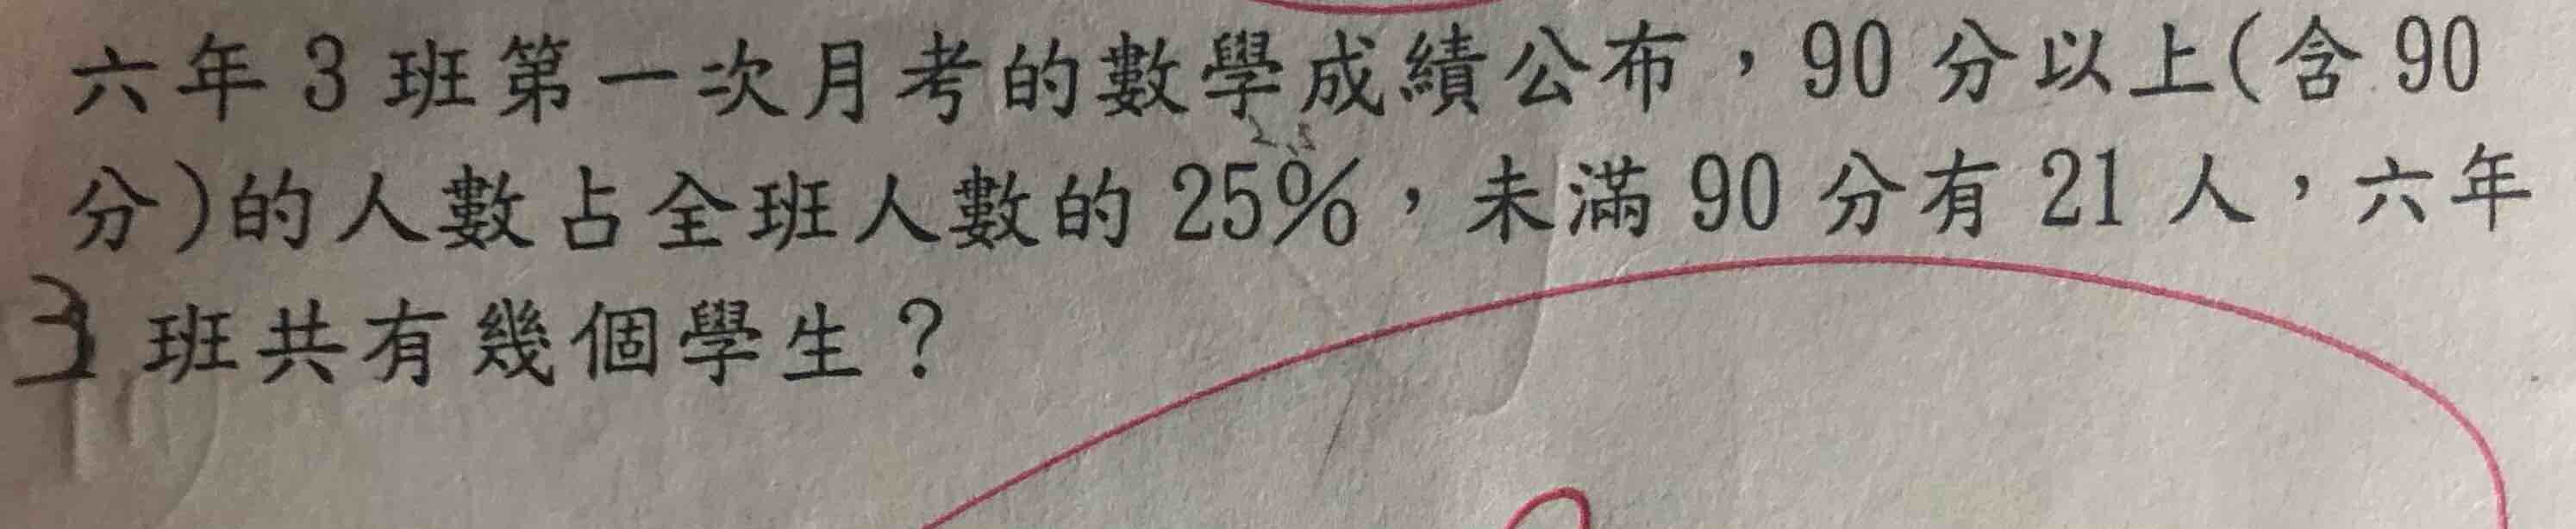 六年 3 班第一次月考的數學成績公布，90 分以上(含 90
分)的人數占全班人數的 25%，未滿 90 分有 21 人，六年
3 班共有幾個學生？